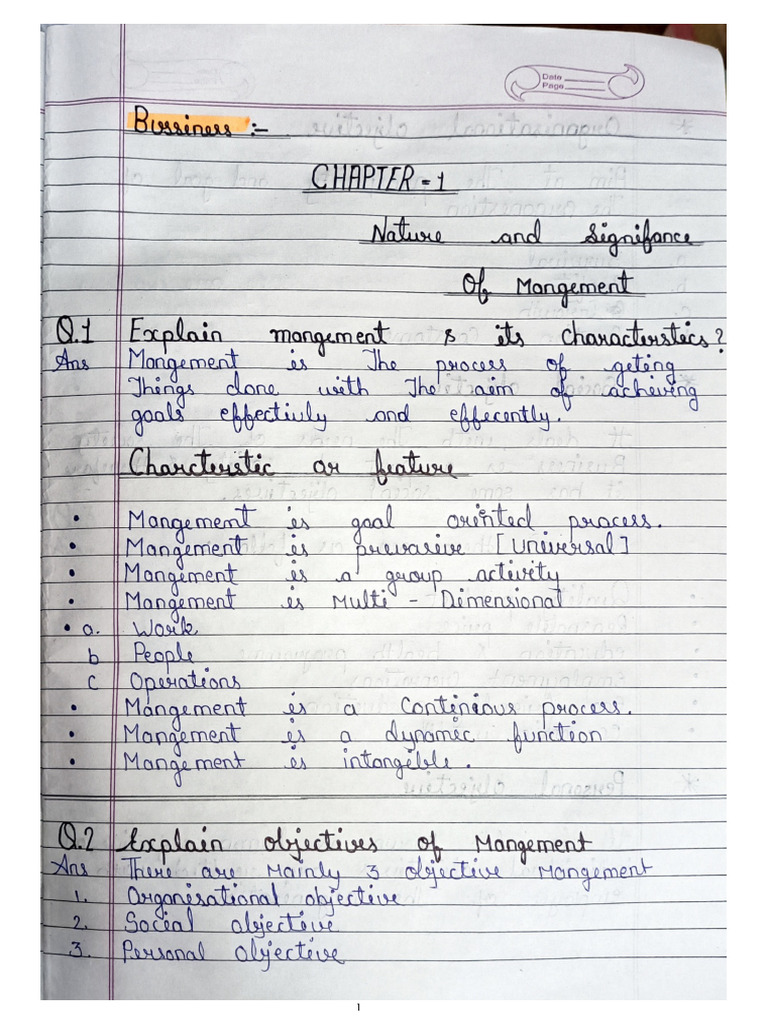 Date
Page
Bussiness :-
CHAPTER - 1
Nature and Signifance
Of Mangement
Q.1 Explain mangement & its characterstics?
Ans Mangement is The process of geting
Things done with The aim of achieving
goals effectiuly and effecently.
Charcterstic or feature
• Mangement is goal oriented process.
• Mangement is prevasive [Universal]
• Mangement is a group activity
• Mangement is Multi - Dimensional
• a. Work
b People
c Operations
• Mangement is a Continious process.
• Mangement is a dynamic function
• Mangement is intangible.
Q.2 Explain objectives of Mangement
Ans There are Mainly 3 objective Mangement
1. Organisational objective
2. Social objective
3. Personal objective
1